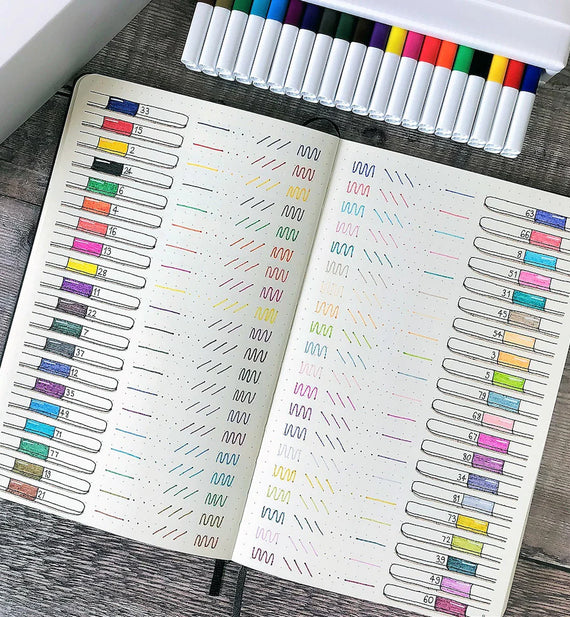 33
15
2
24
6
4
16
13
28
11
22
7
37
12
35
49
71
77
18
21
63
66
8
51
31
45
54
3
5
78
68
67
80
34
81
73
72
39
49
60